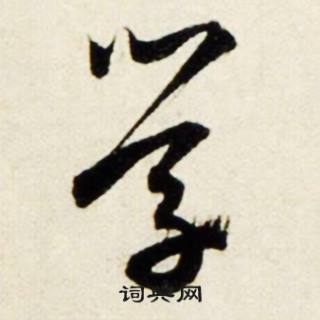 学
词典网